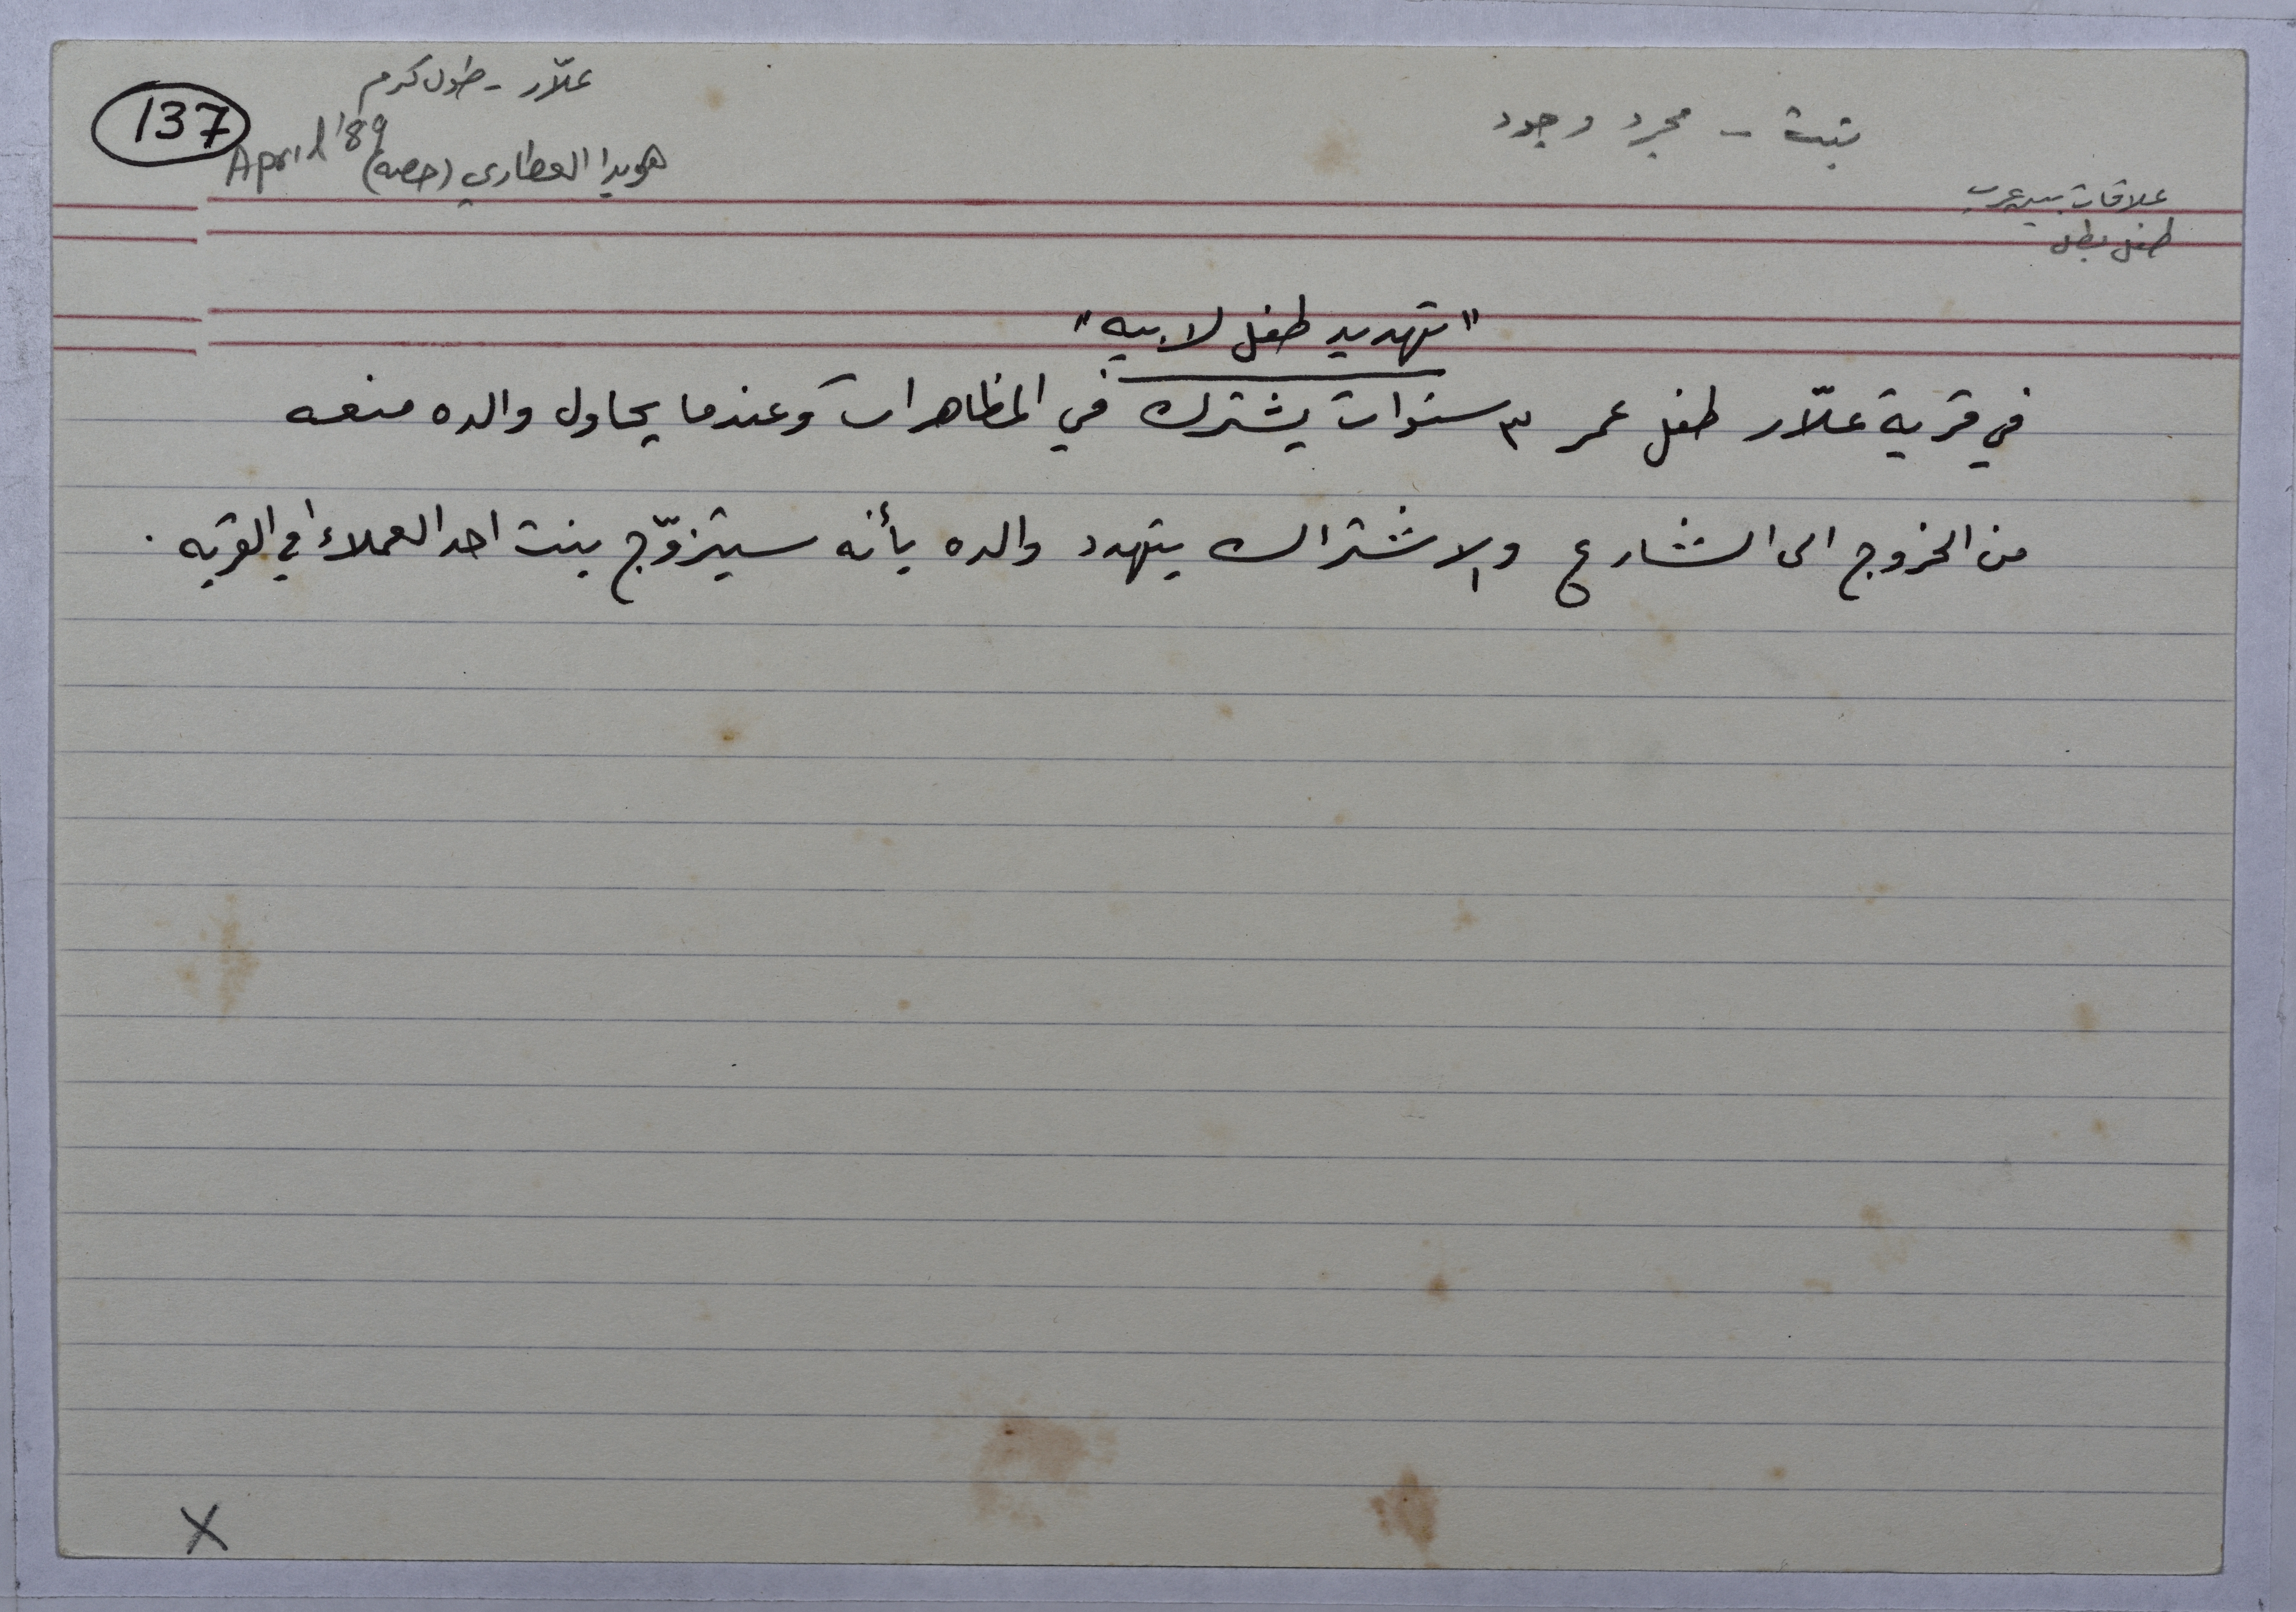 علّار - طولكرم
137
April '89
هويدا العطاري (قصة)
بنت - مجرد وجود
علاقات بين عرب
طفل بطل
"تهديد طفل لابيه"
في قرية علّار طفل عمر ٣ سنوات يشترك في المظاهرات وعندما يحاول والده منعه
من الخروج الى الشارع والاشتراك يتهدد والده بأنه سيتزوّج بنت احد العملاء في القريه .
X